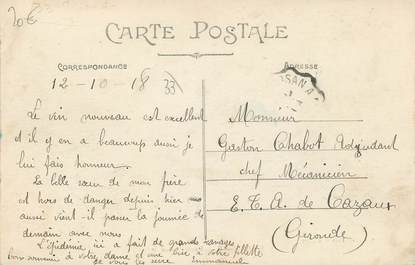 20€
CARTE POSTALE
CORRESPONDANCE
ADRESSE
12-10-18
33
SANA
Le vin nouveau est excellent
et il y en a beaucoup aussi je
lui fais honneur.
La belle sœur de mon frère
est hors de danger depuis hier
aussi vient-il passer la journée de
demain avec nous.
L'épidémie ici a fait de grands ravages
Bien à votre dame et une bise à votre fillette
je vous les serre Emmanuel
Monsieur
Gaston Chabot Adjudant
chef Mécanicien
E. T. A. de Cazaux
(Gironde)